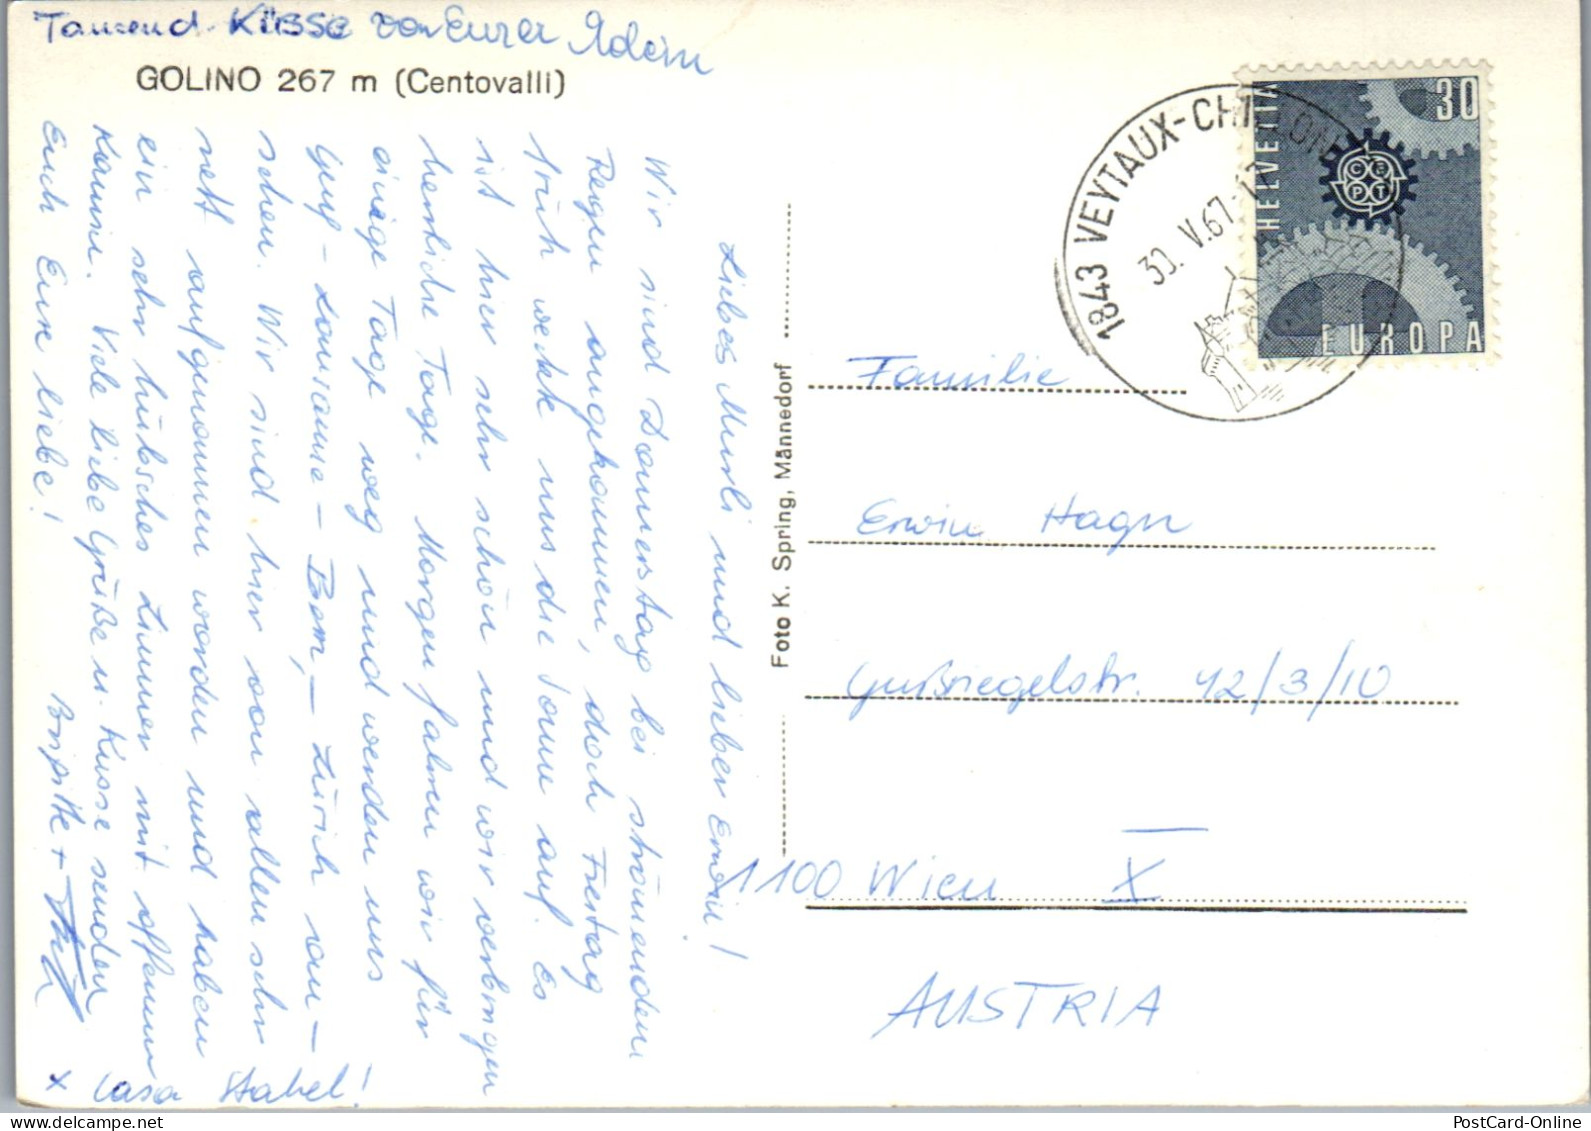 Tausend Küsse von Eurer
GOLINO 267 m (Centovalli)
Liebes Murli und lieber Erwin!
Wir sind Donnerstag bei strömenden
Regen angekommen, doch Freitag
früh weckte uns die Sonne auf. Es
ist hier sehr schön und wir verbringen
herrliche Tage. Morgen fahren wir für
einige Tage weg und wenden uns
Genf - Lausanne - Bern, - Zürich
sehen. Wir sind hier von allen sehr
nett aufgenommen worden und haben
ein sehr hübsches Zimmer mit offenem
Kamin. Viele liebe Grüße u. Küsse senden
Euch Eure liebe!
Brigitte +
x Casa Stabel!
Foto K. Spring, Männedorf
1843 VEYTAUX-CHILLON
30. V. 67
HELVETIA
30
CEPT
EUROPA
Familie
Erwin Hagn
Gußriegelstr. 42/3/10
1100 Wien X
AUSTRIA
PostCard-Online